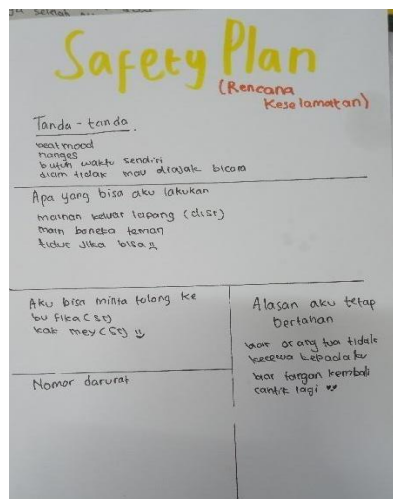 Safety Plan
(Rencana
Keselamatan)
Tanda - tanda
beat mood
nanges
butuh waktu sendiri
diam tidak mau diajak bicara
Apa yang bisa aku lakukan
mainan keluar lapang (disr)
main boneka teman
tidur jika bisa
Aku bisa minta tolong ke
bu fika (sr)
kak mey (sr)
Nomor darurat
Alasan aku tetap
bertahan
biar orang tua tidak
kecewa kepadaku
biar tangan kembali
cantik lagi